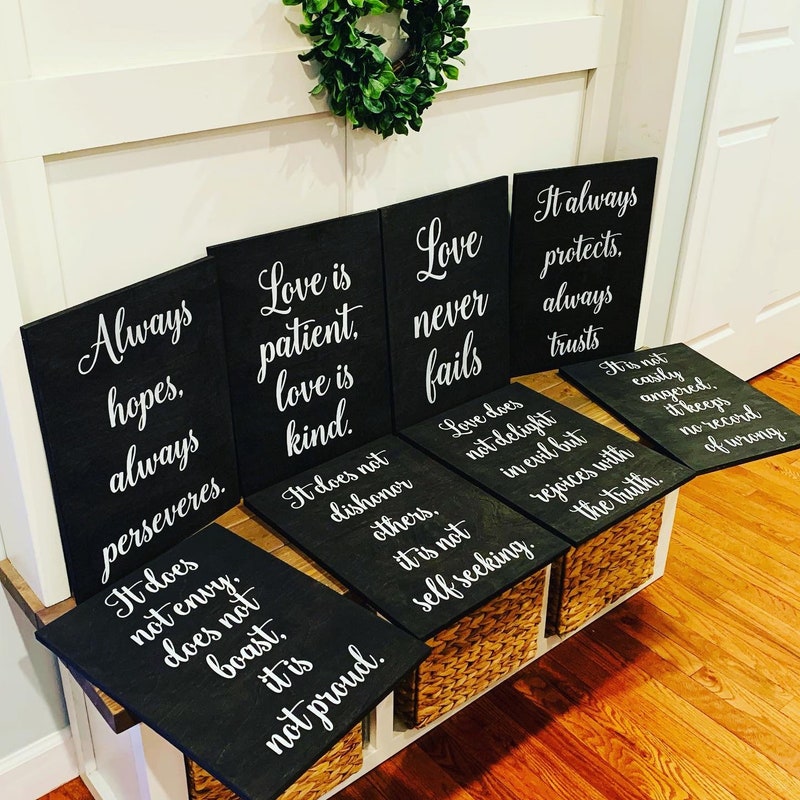 Always
hopes,
always
perseveres.
Love is
patient,
love is
kind.
Love
never
fails
It always
protects,
always
trusts
It does
not envy,
does not
boast,
it is
not proud.
It does not
dishonor
others,
it is not
self seeking.
Love does
not delight
in evil but
rejoices with
the truth.
It is not
easily
angered,
it keeps
no record
of wrong.